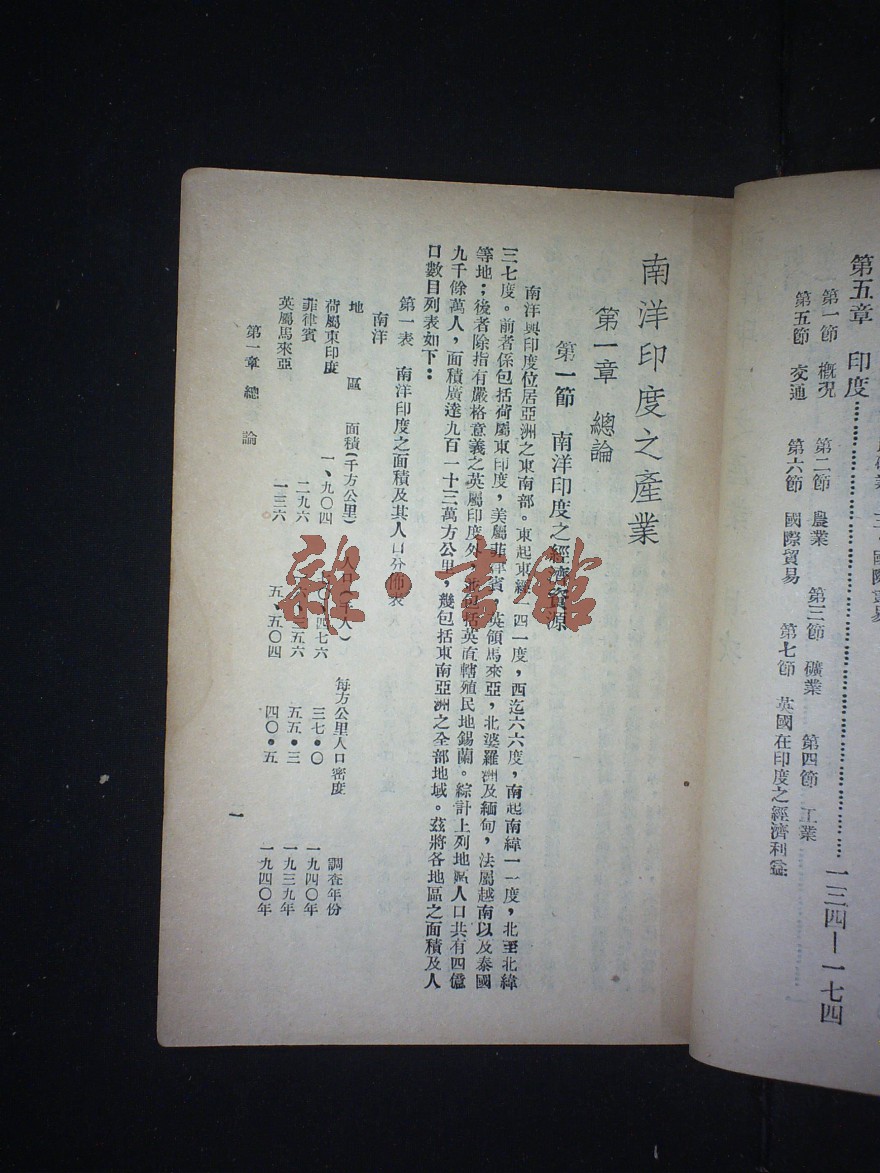 易
第五章　印度……………………………一三四—一七四
第一節　概況　第二節　農業　第三節　礦業　第四節　工業
第五節　交通　第六節　國際貿易　第七節　英國在印度之經濟利益
南洋印度之產業
第一章　總論
第一節　南洋印度之經濟資源
南洋與印度位居亞洲之東南部。東起東經一四一度，西迄六六度，南起南緯一一度，北至北緯
三七度。前者係包括荷屬東印度，美屬菲律賓，英領馬來亞，北婆羅洲及緬甸，法屬越南以及泰國
等地；後者除指有嚴格意義之英屬印度外，並包括英直轄殖民地錫蘭。綜計上列地區人口共有四億
九千餘萬人，面積廣達九百一十三萬方公里，幾包括東南亞洲之全部地域。茲將各地區之面積及人
口數目列表如下：
第一表　南洋印度之面積及其人口分佈表
南洋
地　區　面積(千方公里)　人口(千人)　每方公里人口密度　調查年份
荷屬東印度　一、九〇四　四七六　三七・〇　一九四〇年
菲律賓　二九六　三五六　五五・三　一九三九年
英屬馬來亞　一三六　五、五〇四　四〇・五　一九四〇年
第一章　總論
一
雜・書館